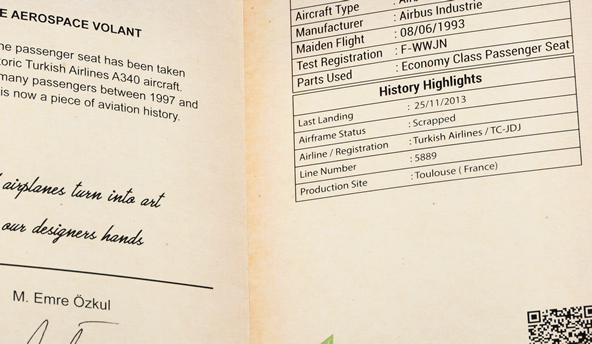 E AEROSPACE VOLANT
he passenger seat has been taken
oric Turkish Airlines A340 aircraft.
many passengers between 1997 and
is now a piece of aviation history.
airplanes turn into art
our designers hands
M. Emre Özkul
Aircraft Type :
Manufacturer : Airbus Industrie
Maiden Flight : 08/06/1993
Test Registration : F-WWJN
Parts Used : Economy Class Passenger Seat
History Highlights
Last Landing : 25/11/2013
Airframe Status : Scrapped
Airline / Registration : Turkish Airlines / TC-JDJ
Line Number : 5889
Production Site : Toulouse ( France)